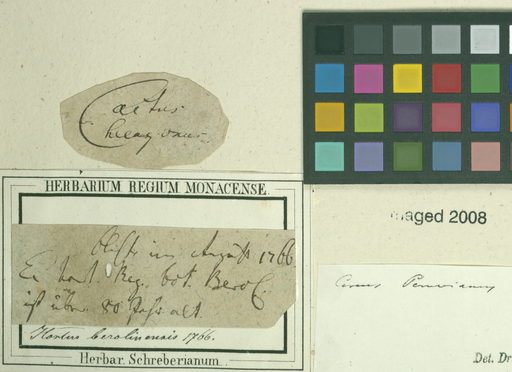 Cactus
HERBARIUM REGIUM MONACENSE.
im August 1766
Ex hort. Reg. bot. Berol.
ist über 80 Jahr alt.
Hortus berolinensis 1766.
Herbar. Schreberianum.
maged 2008
Cereus Peruvianus
Det. Dr